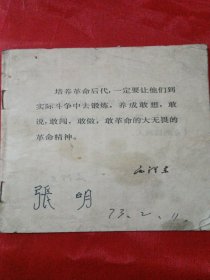 培养革命后代，一定要让他们到
实际斗争中去锻炼，养成敢想，敢
说，敢闯，敢做，敢革命的大无畏的
革命精神。
張明
73.2.11.